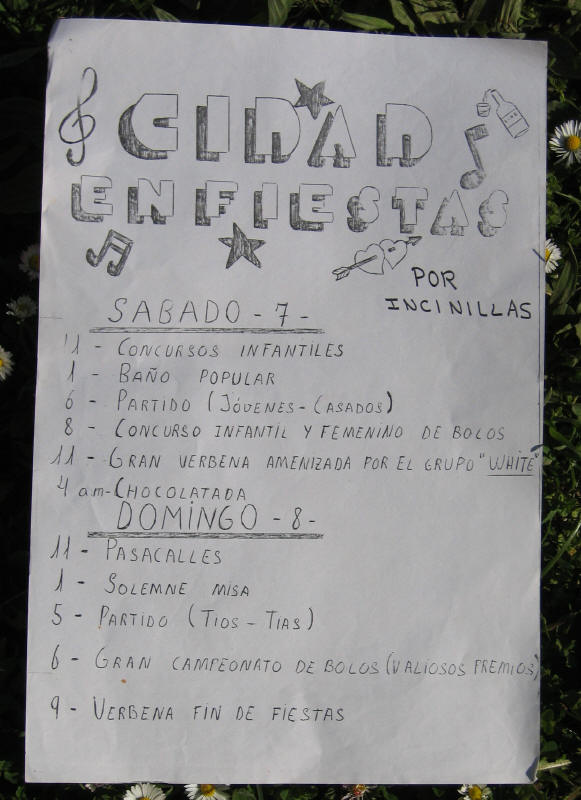 CIDAD
EN FIESTAS
POR
INCINILLAS
SABADO - 7 -
11 - CONCURSOS INFANTILES
1 - BAÑO POPULAR
6 - PARTIDO (JÓVENES - CASADOS)
8 - CONCURSO INFANTIL Y FEMENINO DE BOLOS
11 - GRAN VERBENA AMENIZADA POR EL GRUPO "WHITE"
4 am- CHOCOLATADA
DOMINGO - 8 -
11 - PASACALLES
1 - SOLEMNE MISA
5 - PARTIDO (TIOS - TIAS)
6 - GRAN CAMPEONATO DE BOLOS (VALIOSOS PREMIOS)
9 - VERBENA FIN DE FIESTAS